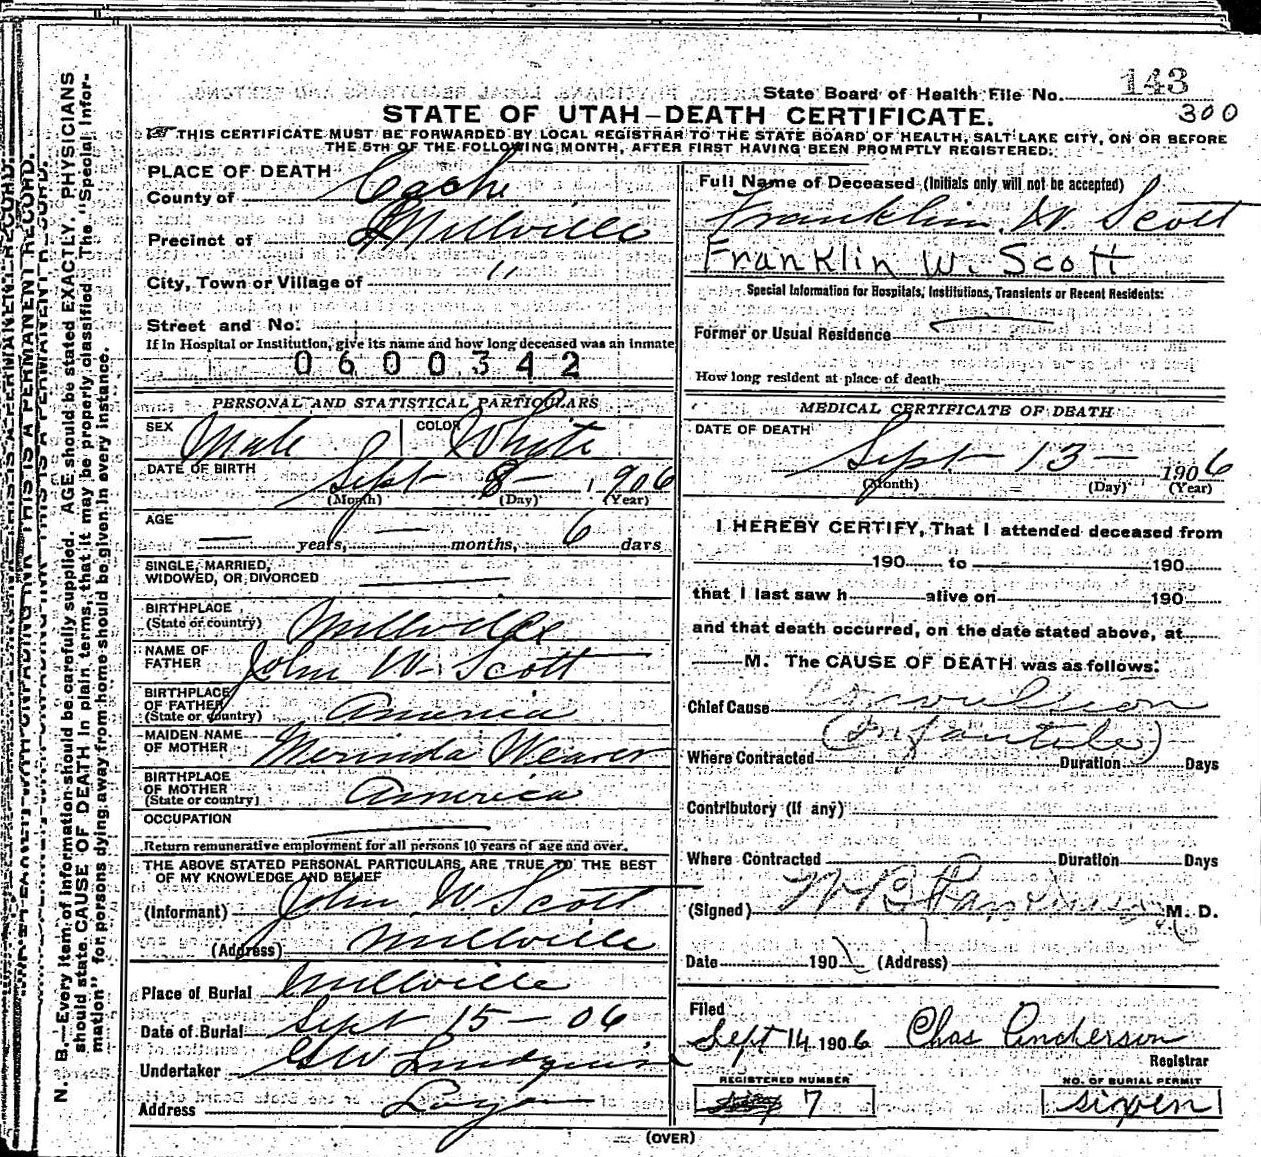 143
State Board of Health File No.
300
STATE OF UTAH—DEATH CERTIFICATE.
THIS CERTIFICATE MUST BE FORWARDED BY LOCAL REGISTRAR TO THE STATE BOARD OF HEALTH, SALT LAKE CITY, ON OR BEFORE
THE 5TH OF THE FOLLOWING MONTH, AFTER FIRST HAVING BEEN PROMPTLY REGISTERED.
PLACE OF DEATH
County of Cache
Precinct of Millville
City, Town or Village of "
Street and No.
If in Hospital or Institution, give its name and how long deceased was an inmate
0600342
PERSONAL AND STATISTICAL PARTICULARS
SEX Male COLOR White
DATE OF BIRTH Sept 8 1906
(Month) (Day) (Year)
AGE — years, — months, 6 days
SINGLE, MARRIED,
WIDOWED, OR DIVORCED
BIRTHPLACE
(State or country) Millville
NAME OF
FATHER John W. Scott
BIRTHPLACE
OF FATHER
(State or country) America
MAIDEN NAME
OF MOTHER Merinda Weaver
BIRTHPLACE
OF MOTHER
(State or country) America
OCCUPATION
Return remunerative employment for all persons 10 years of age and over.
THE ABOVE STATED PERSONAL PARTICULARS ARE TRUE TO THE BEST
OF MY KNOWLEDGE AND BELIEF
(Informant) John W. Scott
(Address) Millville
Place of Burial Millville
Date of Burial Sept 15 — 06
Undertaker Lundquist
Address Logan
Full Name of Deceased (Initials only will not be accepted)
Franklin W Scott
Franklin W. Scott
Special Information for Hospitals, Institutions, Transients or Recent Residents:
Former or Usual Residence
How long resident at place of death
MEDICAL CERTIFICATE OF DEATH
DATE OF DEATH
Sept 13 — 1906
(Month) (Day) (Year)
I HEREBY CERTIFY, That I attended deceased from
190 to 190
that I last saw h alive on 190
and that death occurred, on the date stated above, at
M. The CAUSE OF DEATH was as follows:
Chief Cause Convulsion
(Infantile)
Where Contracted Duration Days
Contributory (if any)
Where Contracted Duration Days
(Signed) M. D.
Date 190 (Address)
Filed
Sept 14 1906 Chas Anderson
Registrar
REGISTERED NUMBER
7
NO. OF BURIAL PERMIT
N. B.—Every item of information should be carefully supplied. AGE should be stated EXACTLY. PHYSICIANS
should state CAUSE OF DEATH in plain terms, that it may be properly classified. The "Special Infor-
mation" for persons dying away from home should be given in every instance.
(OVER)